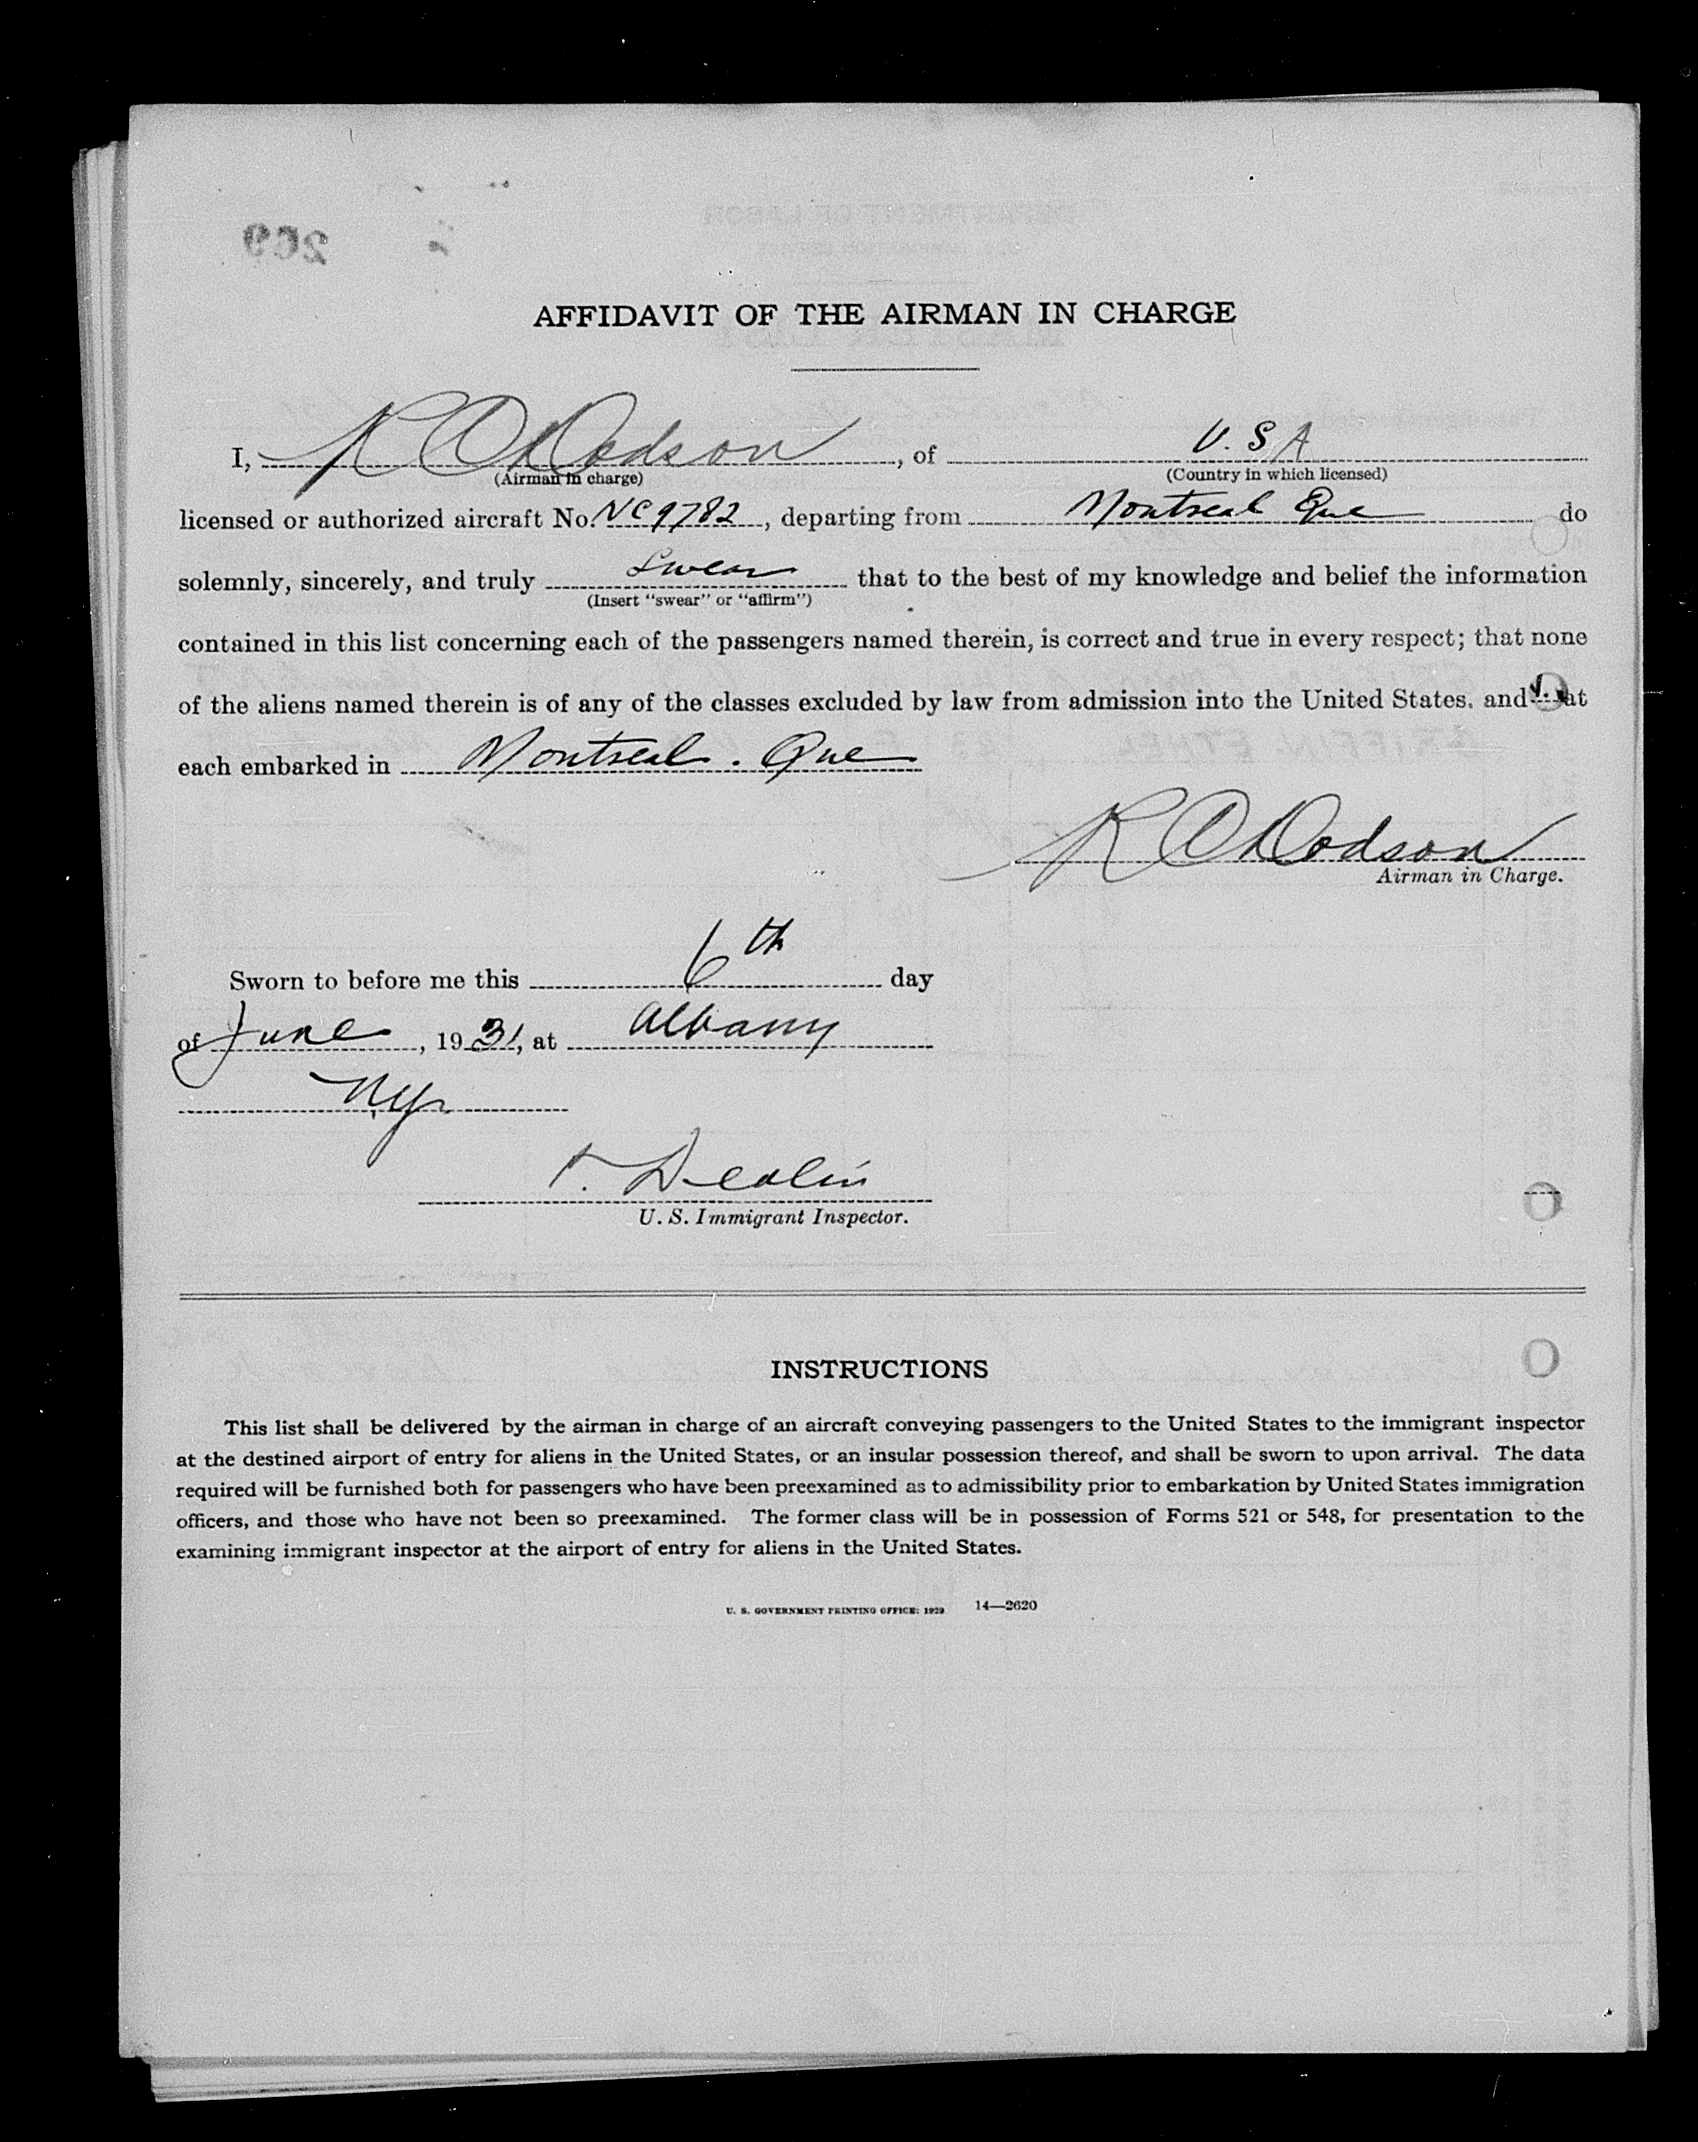 AFFIDAVIT OF THE AIRMAN IN CHARGE
I, R C Dodson, of U.S A
(Airman in charge) (Country in which licensed)
licensed or authorized aircraft No. NC 9782, departing from Montreal Que do
solemnly, sincerely, and truly Swear that to the best of my knowledge and belief the information
(Insert "swear" or "affirm")
contained in this list concerning each of the passengers named therein, is correct and true in every respect; that none
of the aliens named therein is of any of the classes excluded by law from admission into the United States, and that
each embarked in Montreal. Que
R C Dodson
Airman in Charge.
Sworn to before me this 6th day
of June, 1931, at Albany
NY
Dealin
U. S. Immigrant Inspector.
INSTRUCTIONS
This list shall be delivered by the airman in charge of an aircraft conveying passengers to the United States to the immigrant inspector
at the destined airport of entry for aliens in the United States, or an insular possession thereof, and shall be sworn to upon arrival. The data
required will be furnished both for passengers who have been preexamined as to admissibility prior to embarkation by United States immigration
officers, and those who have not been so preexamined. The former class will be in possession of Forms 521 or 548, for presentation to the
examining immigrant inspector at the airport of entry for aliens in the United States.
U. S. GOVERNMENT PRINTING OFFICE: 1929 14—2620